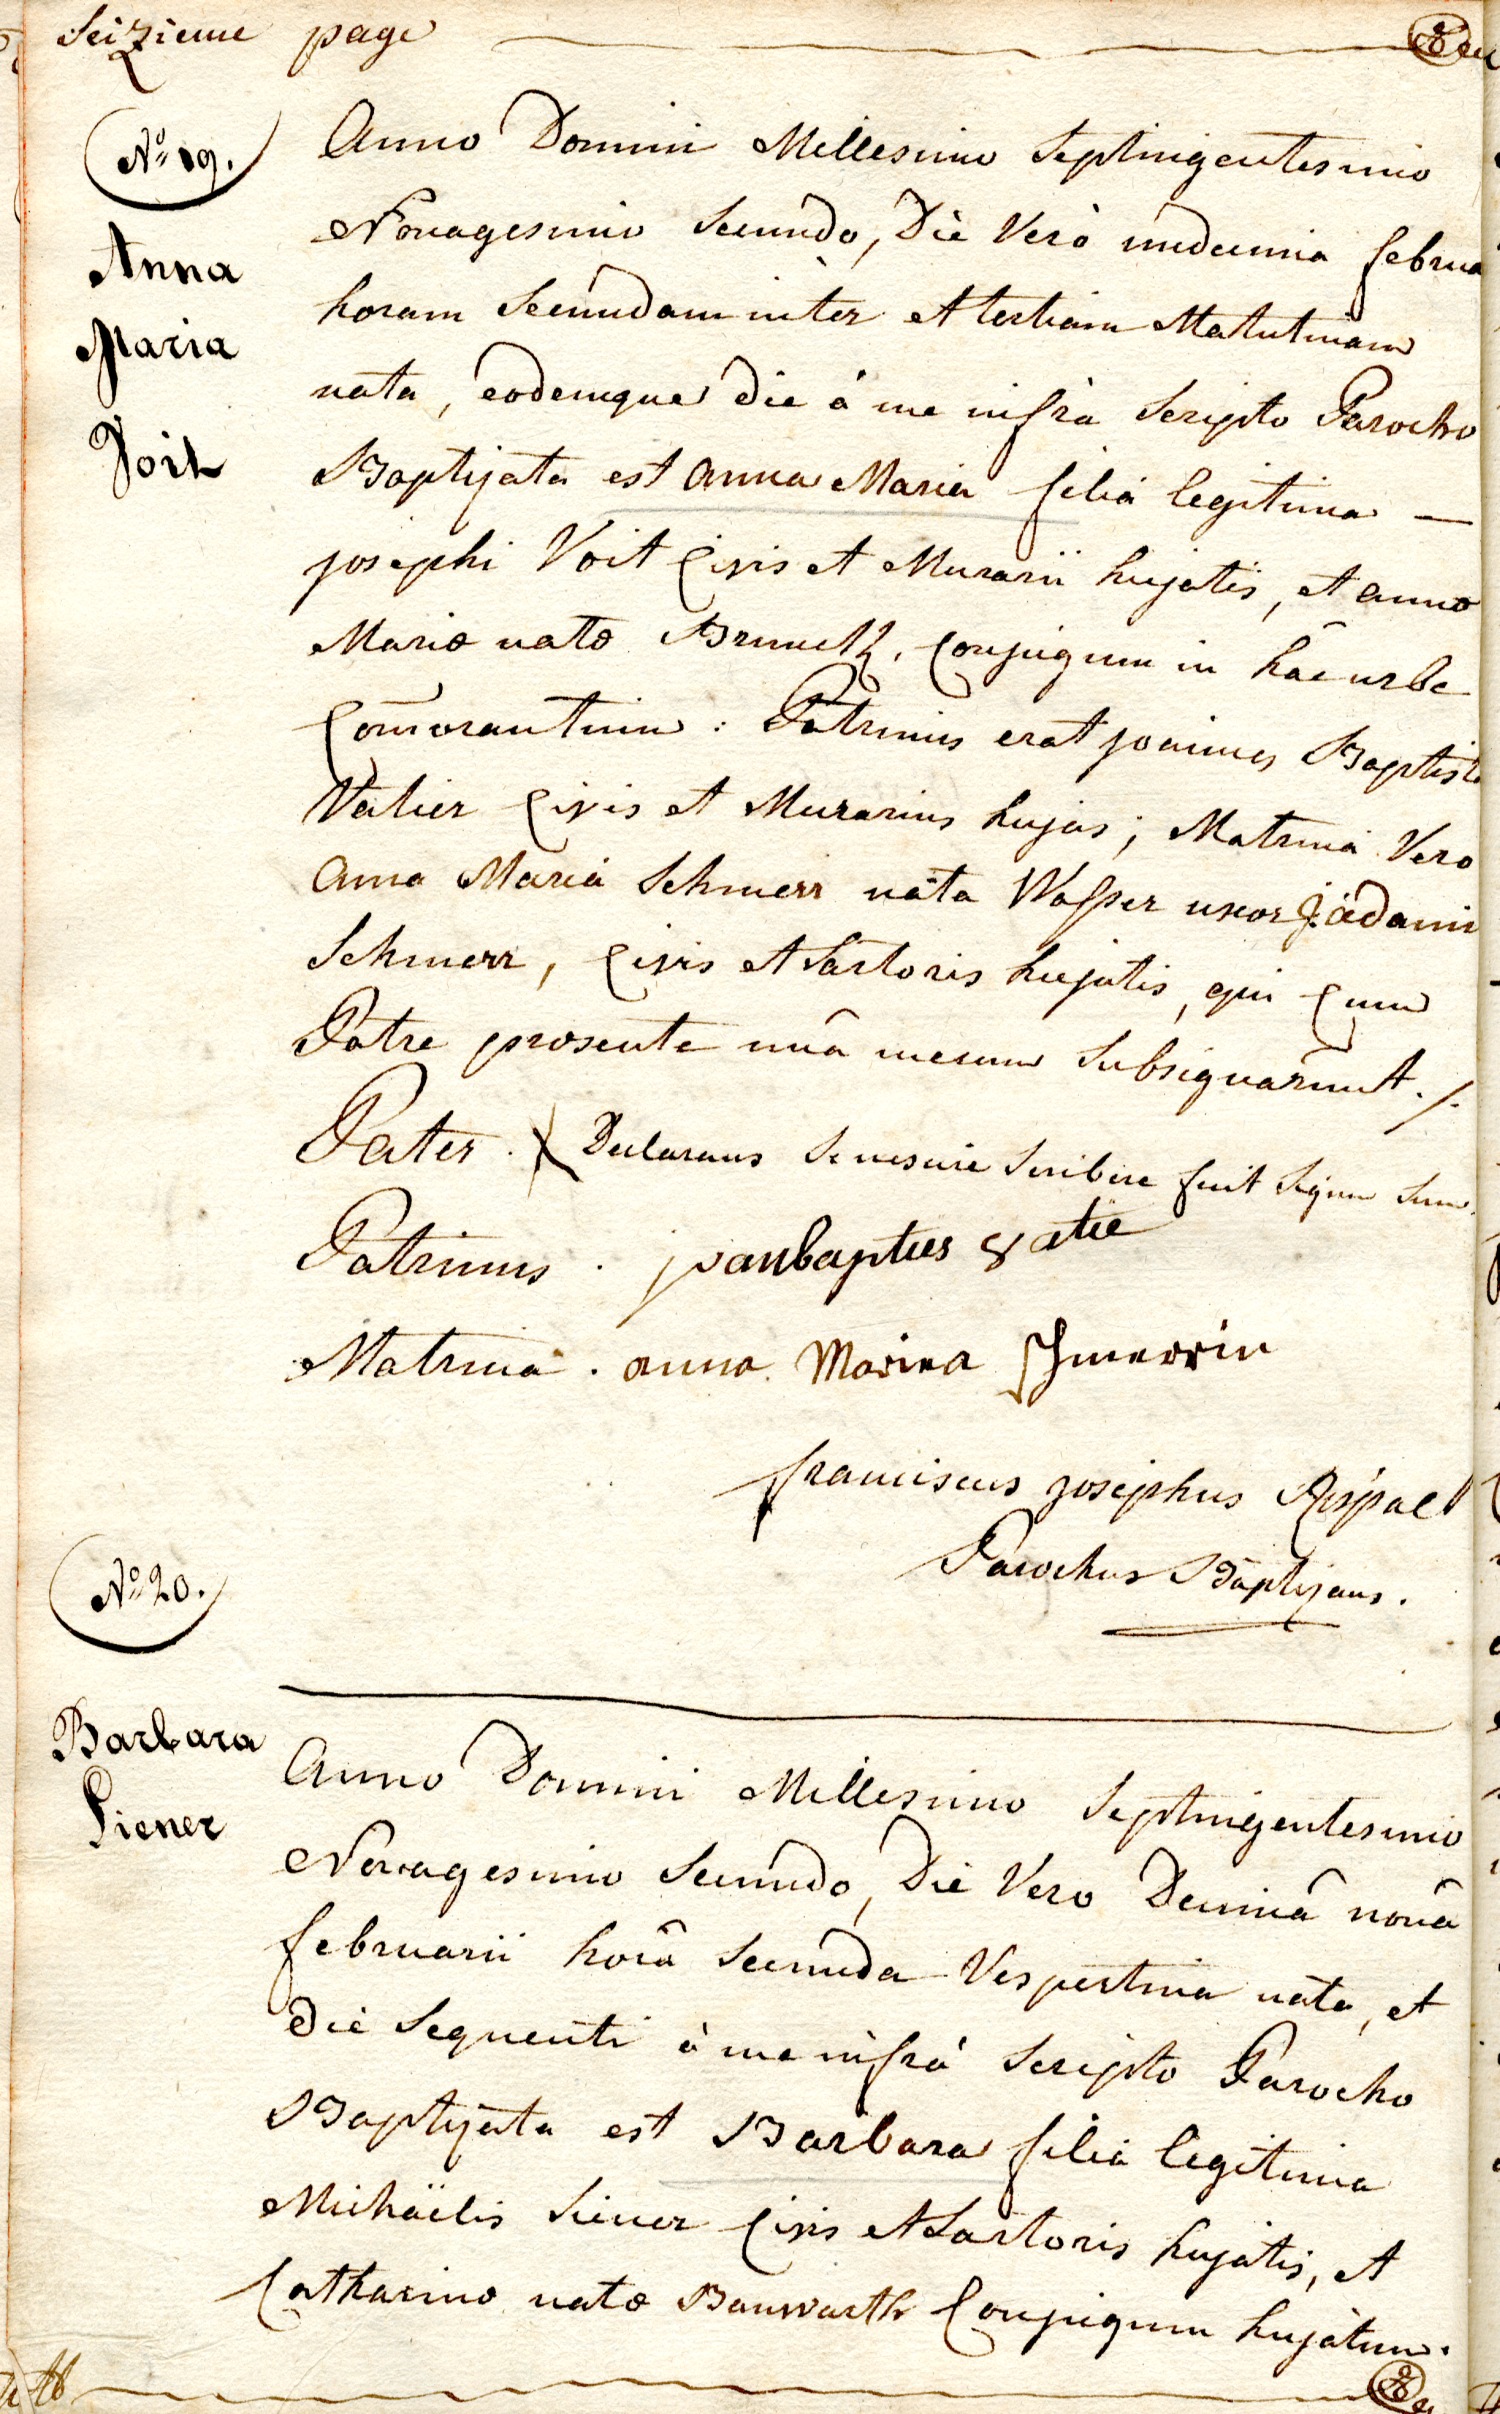 Seizieme page
No 19.
Anna
Maria
Voit
Anno Domini Millesimo Septingentesimo
Nonagesimo Secundo, Die Vero undecima februa
horam Secundam inter et tertiam Matutinam
nata, eodemque die à me infrà Scripto Parocho
Baptizata est anna Maria filia legitima —
josephi Voit Civis et Murarii hujatis, et annæ
Mariæ natæ conjugum in hâc urbe
Com̄orantium : Patrinus erat joannes Baptista
Vatier Civis et Murarius hujas; Matrina Vero
anna Maria Schmerr nata Wasser uxor j: adami
Schmerr, Civis et Sartoris hujatis, qui Cum
Patre præsente unâ mecum Subsignarunt ./.
Pater . Declarans Se nescire Scribere fecit Signum Suum
Patrinus . joanbapties vatie
Matrina . anna Mariea Schmerrin
franciscus josephus Rispal
Parochus Baptizans.
No 20.
Barbara
Siener
Anno Domini Millesimo Septingentesimo
Nonagesimo Secundo, Die Vero Decimâ nonâ
februarii horâ Secunda Vespertina nata, et
die Sequenti à me infrà Scripto Parocho
Baptizata est Barbara filia legitima
Michaëlis Siener Civis et Sartoris hujatis, et
Catharinæ natæ Banwarth Conjugum hujatum.